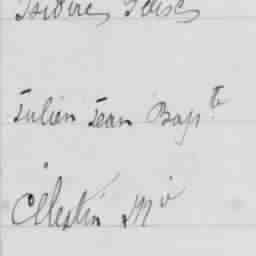 Isidore
Julien Jean Bapte
Célestin Mie